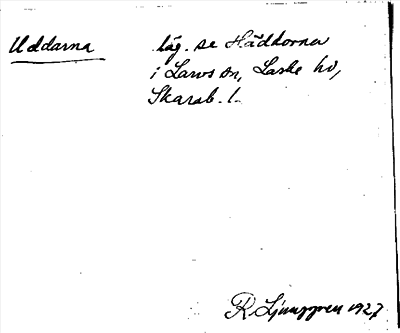 Uddarna läg. se Häddorna
i Larvs sn, Laske hd,
Skarab. l.
R Ljunggren 1927